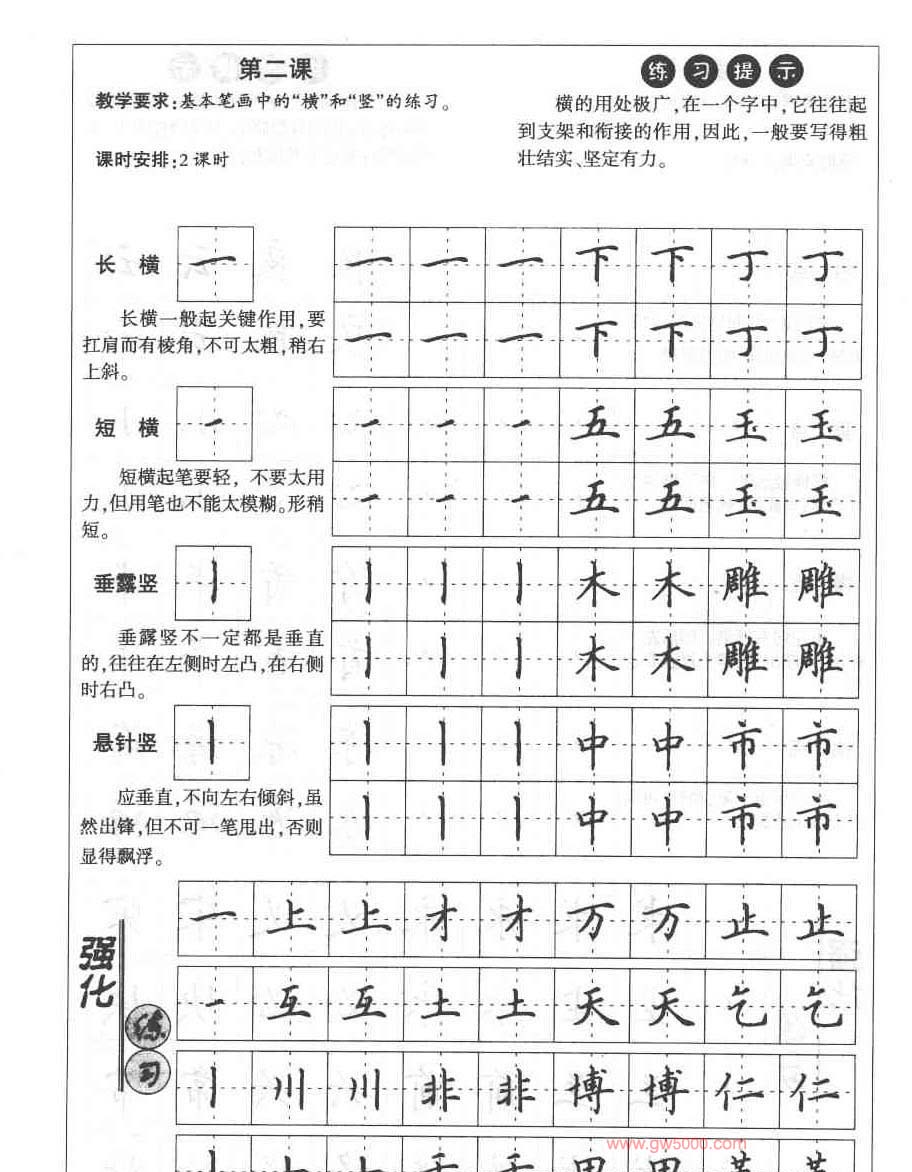 第二课
教学要求:基本笔画中的“横”和“竖”的练习。
课时安排:2课时
练习提示
横的用处极广,在一个字中,它往往起
到支架和衔接的作用,因此,一般要写得粗
壮结实、坚定有力。
长横 一
一 一 一 下 下 丁 丁
长横一般起关键作用,要
扛肩而有棱角,不可太粗,稍右
上斜。
一 一 一 下 下 丁 丁
短横 一
一 一 一 五 五 玉 玉
短横起笔要轻，不要太用
力,但用笔也不能太模糊。形稍
短。
一 一 一 五 五 玉 玉
垂露竖 丨
丨 丨 丨 木 木 雕 雕
垂露竖不一定都是垂直
的,往往在左侧时左凸,在右侧
时右凸。
丨 丨 丨 木 木 雕 雕
悬针竖 丨
丨 丨 丨 中 中 市 市
应垂直,不向左右倾斜,虽
然出锋,但不可一笔甩出,否则
显得飘浮。
丨 丨 丨 中 中 市 市
强化
练习
一 上 上 才 才 万 万 止 止
一 互 互 土 土 天 天 乞 乞
丨 川 川 非 非 博 博 仁 仁
www.gw5000.com